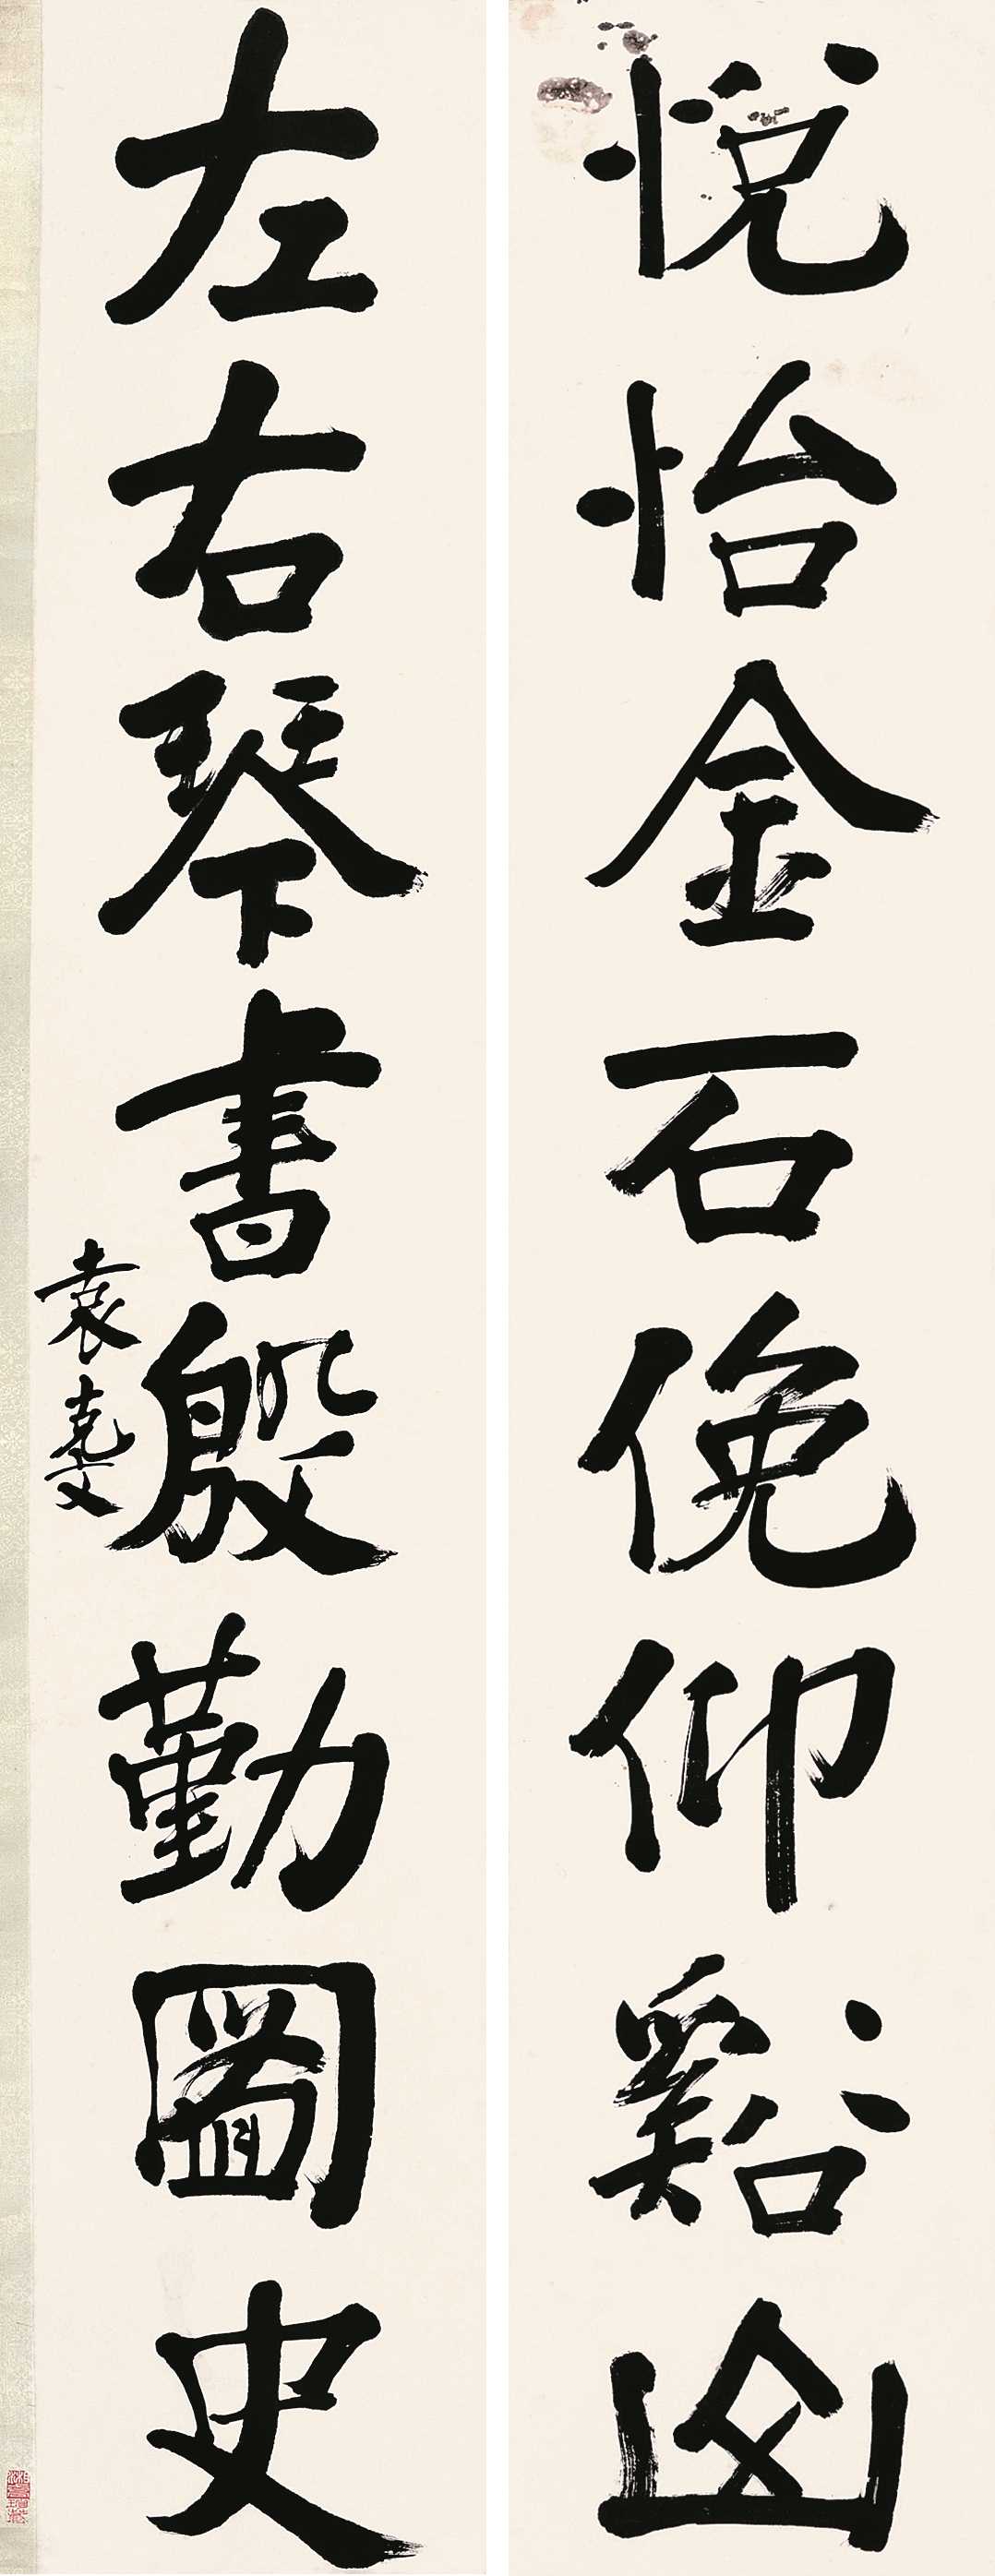 悅怡金石俛仰谿山
左右琴書殷勤圖史
袁克文